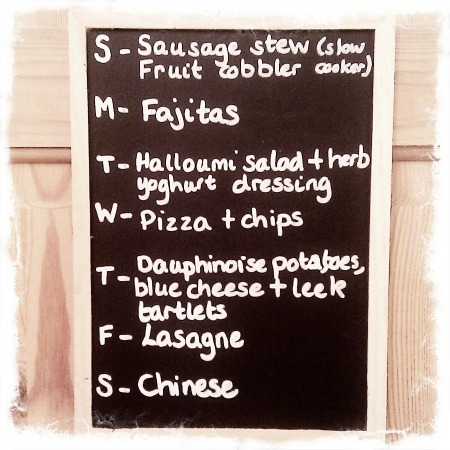 S - Sausage stew (slow
Fruit cobbler cooker)
M - Fajitas
T - Halloumi salad + herb
yoghurt dressing
W - Pizza + chips
T - Dauphinoise potatoes,
blue cheese + leek
tartlets
F - Lasagne
S - Chinese